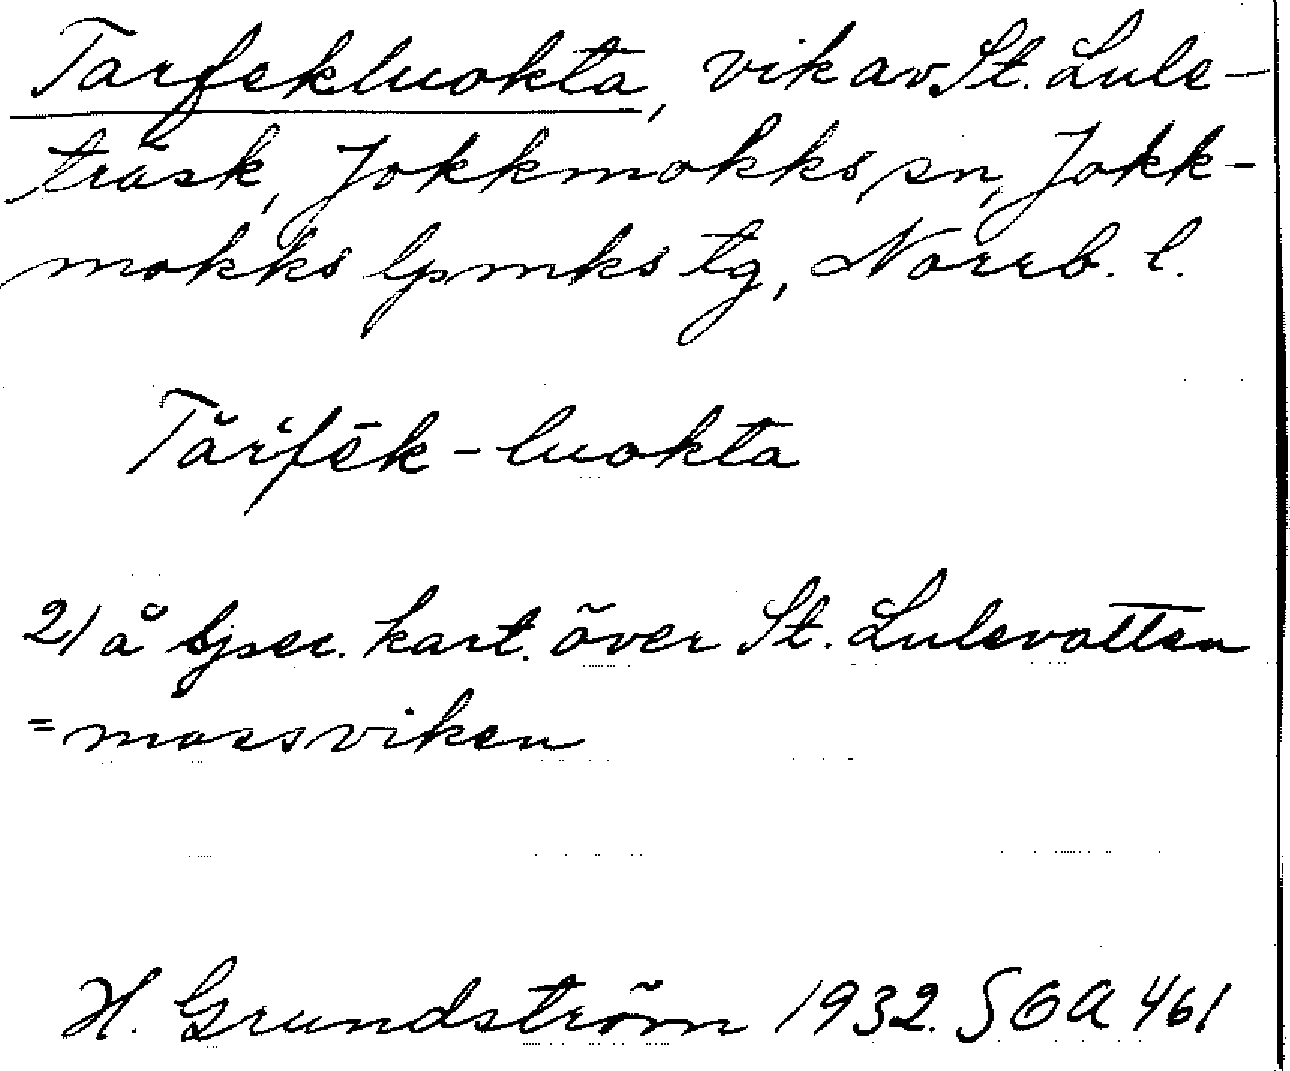 Tarfekluokta, vik av St. Lule-
träsk, Jokkmokks sn, Jokk-
mokks lpmks tg, Norrb. l.
Tăr'fēk-luokta
2) å spec. kart. över St. Lulevatten
= mossviken
H. Grundström 1932. SOA 461